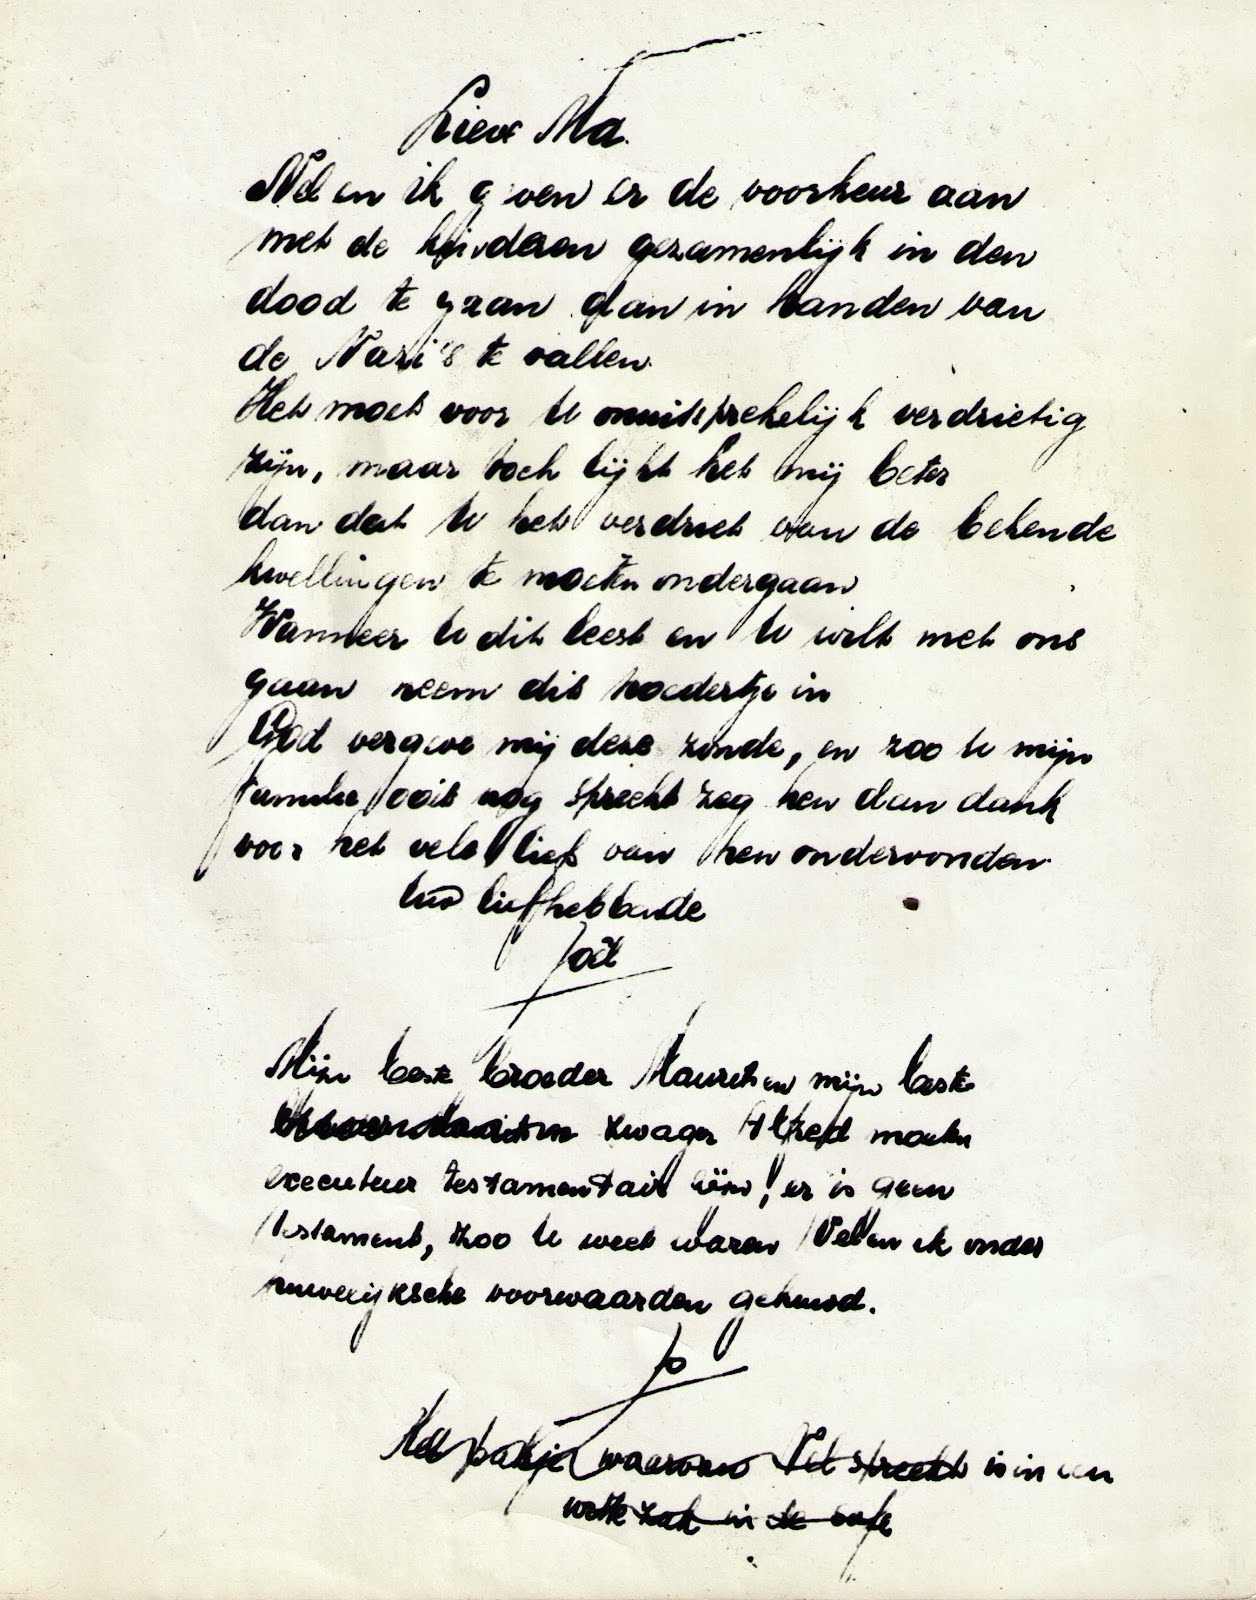 Lieve Ma.
Nel en ik geven er de voorkeur aan
met de kinderen gezamenlijk in den
dood te gaan dan in handen van
de Nazi's te vallen.
Het moet voor U onuitsprekelijk verdrietig
zijn, maar toch lijkt het mij beter
dan dat U het verdriet van de bekende
kwellingen te moeten ondergaan
Wanneer U dit leest en U wilt met ons
gaan neem dit poedertje in
God vergeve mij deze zonde, en zoo U mijn
familie ooit nog spreekt zeg hen dan dank
voor het vele lief van hen ondervonden
Uw liefhebbende
Mijn beste broeder Maurits en mijn beste
zwager Alfred moeten
executeur testamentair zijn, er is geen
testament, zoo U weet waren Nel en ik onder
huwelijksche voorwaarden gehuwd.
Jo
Het pakje waarvan Nel spreekt is in een
witte zak in de safe